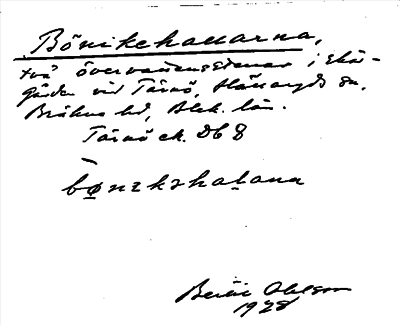 Bönikehallarna,
två övervattensstenar i skär-
gården vid Tärnö, Hällaryds sn.
Bräkne hd, Blek. län.
Tärnö ek. Db 8
bønɛkɜhaḷana
Bertil Ohlsson
1928